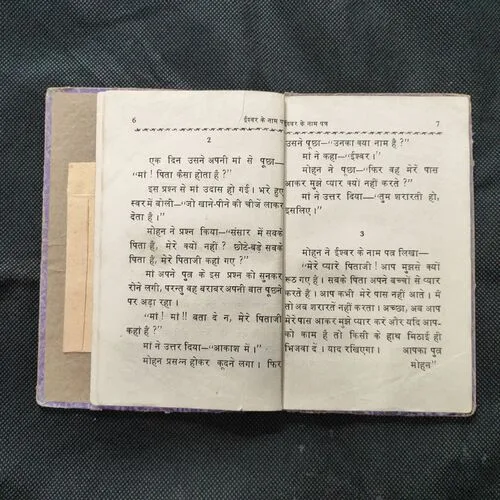 6 ईश्वर के नाम पत्र
2
एक दिन उसने अपनी मां से पूछा—
“मां ! पिता कैसा होता है ?”
इस प्रश्न से मां उदास हो गई। भरे हुए
स्वर में बोली—“जो खाने-पीने की चीजें लाकर
देता है।”
मोहन ने प्रश्न किया—“संसार में सबके
पिता हैं, मेरे क्यों नहीं ? छोटे-बड़े सबके
पिता हैं, मेरे पिताजी कहां गए ?”
मां अपने पुत्र के इस प्रश्न को सुनकर
रोने लगी, परन्तु वह बराबर अपनी बात पूछने
पर अड़ा रहा।
“मां ! मां !! बता दे न, मेरे पिताजी
कहां हैं ?”
मां ने उत्तर दिया—“आकाश में।”
मोहन प्रसन्न होकर कूदने लगा। फिर
ईश्वर के नाम पत्र 7
उसने पूछा—“उनका क्या नाम है ?”
मां ने कहा—“ईश्वर।”
मोहन ने पूछा—“फिर वह मेरे पास
आकर मुझे प्यार क्यों नहीं करते ?”
मां ने उत्तर दिया—“तुम शरारती हो,
इसलिए।”
3
मोहन ने ईश्वर के नाम पत्र लिखा—
“मेरे प्यारे पिताजी ! आप मुझसे क्यों
रूठ गए हैं। सबके पिता अपने बच्चों से प्यार
करते हैं। आप कभी मेरे पास नहीं आते। मैं
तो अब शरारतें नहीं करता। अच्छा, अब आप
मेरे पास आकर मुझे प्यार करें और यदि आप-
को काम है तो किसी के हाथ मिठाई ही
भिजवा दें। याद रखिएगा। आपका पुत्र
मोहन”